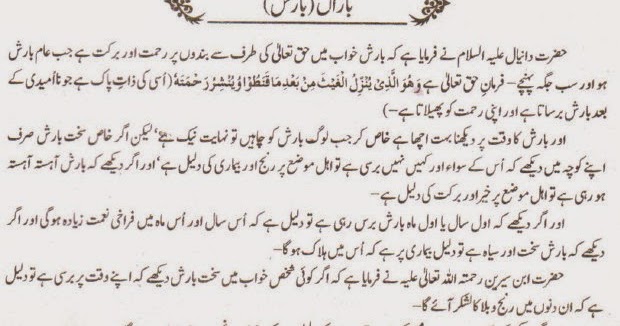 باراں (بارش)
حضرت دانیال علیہ السلام نے فرمایا ہے کہ بارش خواب میں حق تعالیٰ کی طرف سے بندوں پر رحمت اور برکت ہے جب عام بارش
ہو اور سب جگہ پہنچے – فرمانِ حق تعالیٰ ہے وَهُوَ الَّذِىْ يُنَزِّلُ الْغَيْثَ مِنْ بَعْدِ مَا قَنَطُوْا وَيَنْشُرُ رَحْمَتَهٗ (اُسی کی ذاتِ پاک ہے جو نا اُمیدی کے
بعد بارش برساتا ہے اور اپنی رحمت کو پھیلاتا ہے –)
اور بارش کا وقت پر دیکھنا بہت اچھا ہے خاص کر جب لوگ بارش کو چاہیں تو نہایت نیک ہے‘ لیکن اگر خاص سخت بارش صرف
اپنے کوچہ میں دیکھے کہ اُس کے سواء اور کہیں نہیں برسی ہے تو اہل موضع پر رنج اور بیماری کی دلیل ہے‘ اور اگر دیکھے کہ بارش آہستہ آہستہ
ہو رہی ہے تو اہل موضع پر خیر اور برکت کی دلیل ہے –
اور اگر دیکھے کہ اول سال یا اول ماہ بارش برس رہی ہے تو دلیل ہے کہ اُس سال اور اُس ماہ میں فراخی نعمت زیادہ ہوگی اور اگر
دیکھے کہ بارش سخت اور سیاہ ہے تو دلیل بیماری پر ہے کہ اُس میں ہلاک ہوگا –
حضرت ابن سیرین رحمتہ اللہ تعالیٰ علیہ نے فرمایا ہے کہ اگر کوئی شخص خواب میں سخت بارش دیکھے کہ اپنے وقت پر برسی ہے تو دلیل
ہے کہ ان دنوں میں رنج و بلا کا لشکر آئے گا –